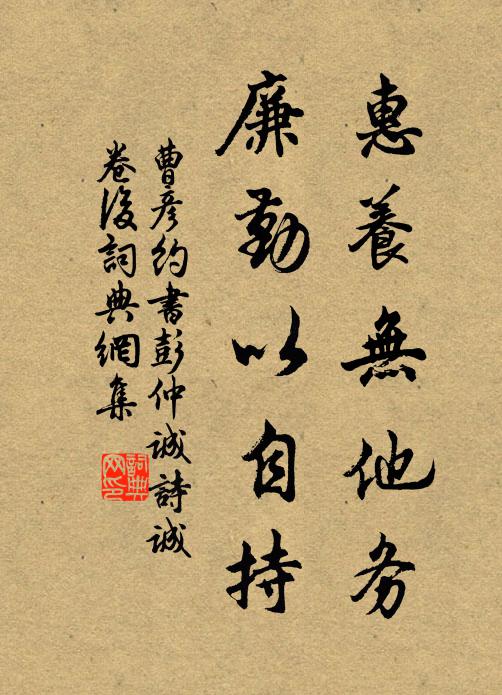 惠養無他务
廉勤以自持
曹彦約書彭仲诚詩诚
卷後詞典網集
詞典网印